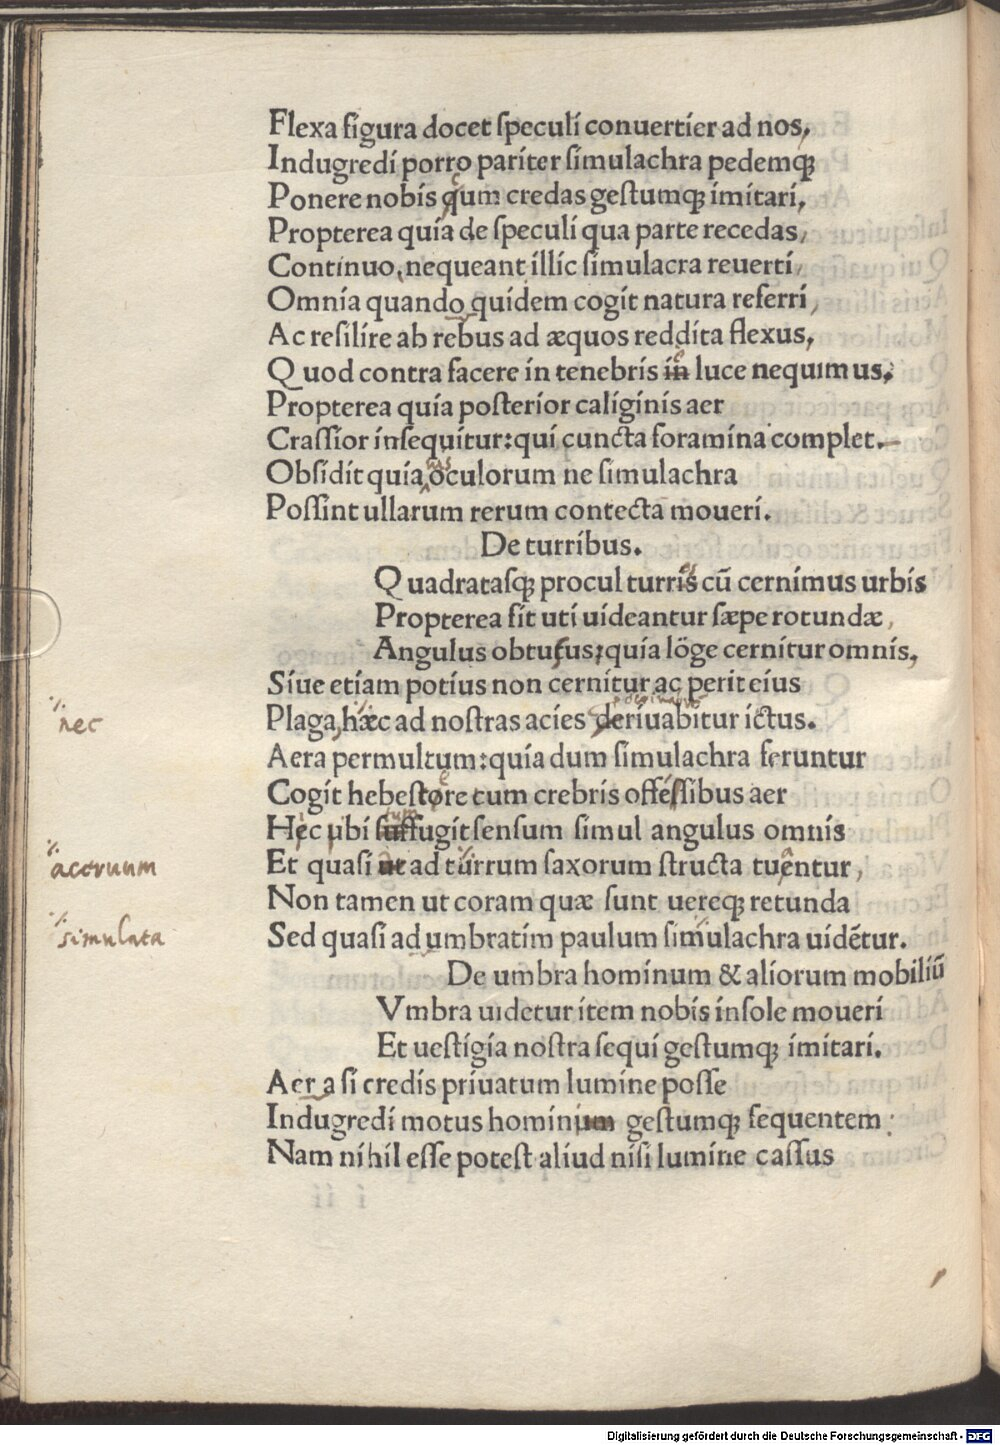 Flexa figura docet ſpeculi conuertier ad nos,
Indugredi porro pariter ſimulachra pedemqꝫ
Ponere nobis qum credas geſtumqꝫ imitari,
Propterea quia de ſpeculi qua parte recedas,
Continuo, nequeant illic ſimulacra reuerti,
Omnia quando quidem cogit natura referri,
Ac reſilire ab rebus ad æquos reddita flexus,
Quod contra facere in tenebris in luce nequimus.
Propterea quia poſterior caliginis aer
Craſſior inſequitur: qui cuncta foramina complet.
Obſidit quia uias oculorum ne ſimulachra
Poſſint ullarum rerum contecta moueri.
De turribus.
Quadrataſqꝫ procul turris cū cernimus urbis
Propterea fit uti uideantur ſæpe rotundæ,
Angulus obtuſus; quia lōge cernitur omnis,
Siue etiam potius non cernitur ac perit eius
nec
Plaga, hæc ad noſtras acies deriuabitur ictus.
Aera permultum: quia dum ſimulachra feruntur
Cogit hebeſtore tum crebris offéſſibus aer
Hec ubi ſuffugit ſenſum ſimul angulus omnis
aceruum
Et quaſi ut ad turrum ſaxorum ſtructa tuentur,
Non tamen ut coram quæ ſunt uereqꝫ retunda
simulata
Sed quaſi ad umbratim paulum ſimulachra uidētur.
De umbra hominum & aliorum mobiliū
Vmbra uidetur item nobis in ſole moueri
Et ueſtigia noſtra ſequi geſtumqꝫ imitari.
Aer a ſi credis priuatum lumine poſſe
Indugredi motus hominum geſtumqꝫ ſequentem:
Nam nihil eſſe poteſt aliud niſi lumine caſſus
Digitalisierung gefördert durch die Deutsche Forschungsgemeinschaft - DFG